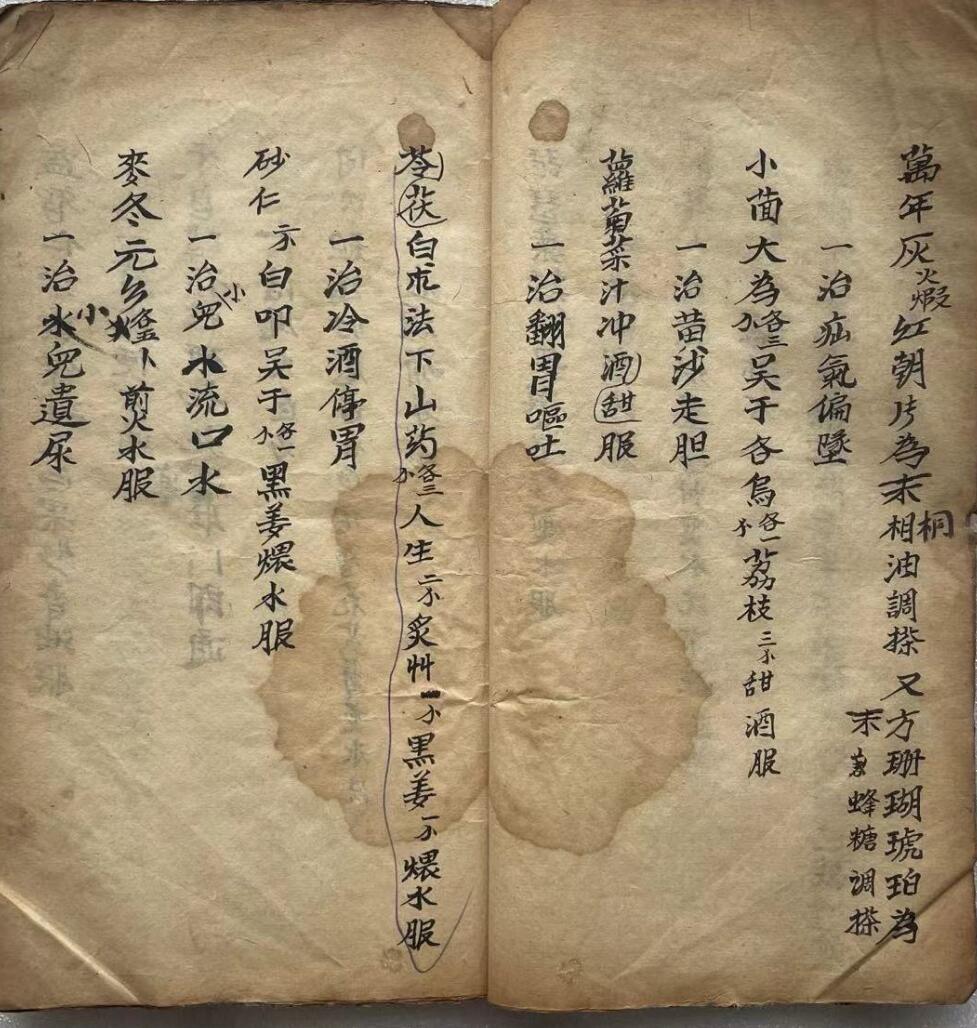 萬年灰火煆紅朝片為末桐相油調搽 又方珊瑚琥珀為
末兼蜂糖調搽
一治疝氣偏墜
小茴大為各三小吴于各烏各一小荔枝三小甜酒服
一治苗沙走胆
蘿蔔菜汁冲酒甜服
一治翻胃嘔吐
苓茯白朮法下山药各三小人生二小炙艸一小黑姜一小煨水服
一治冷酒停胃
砂仁一小白叩吴于各一小黑姜煨水服
一治兒小水流口水
麥冬元 前火水服
一治小兒遺尿